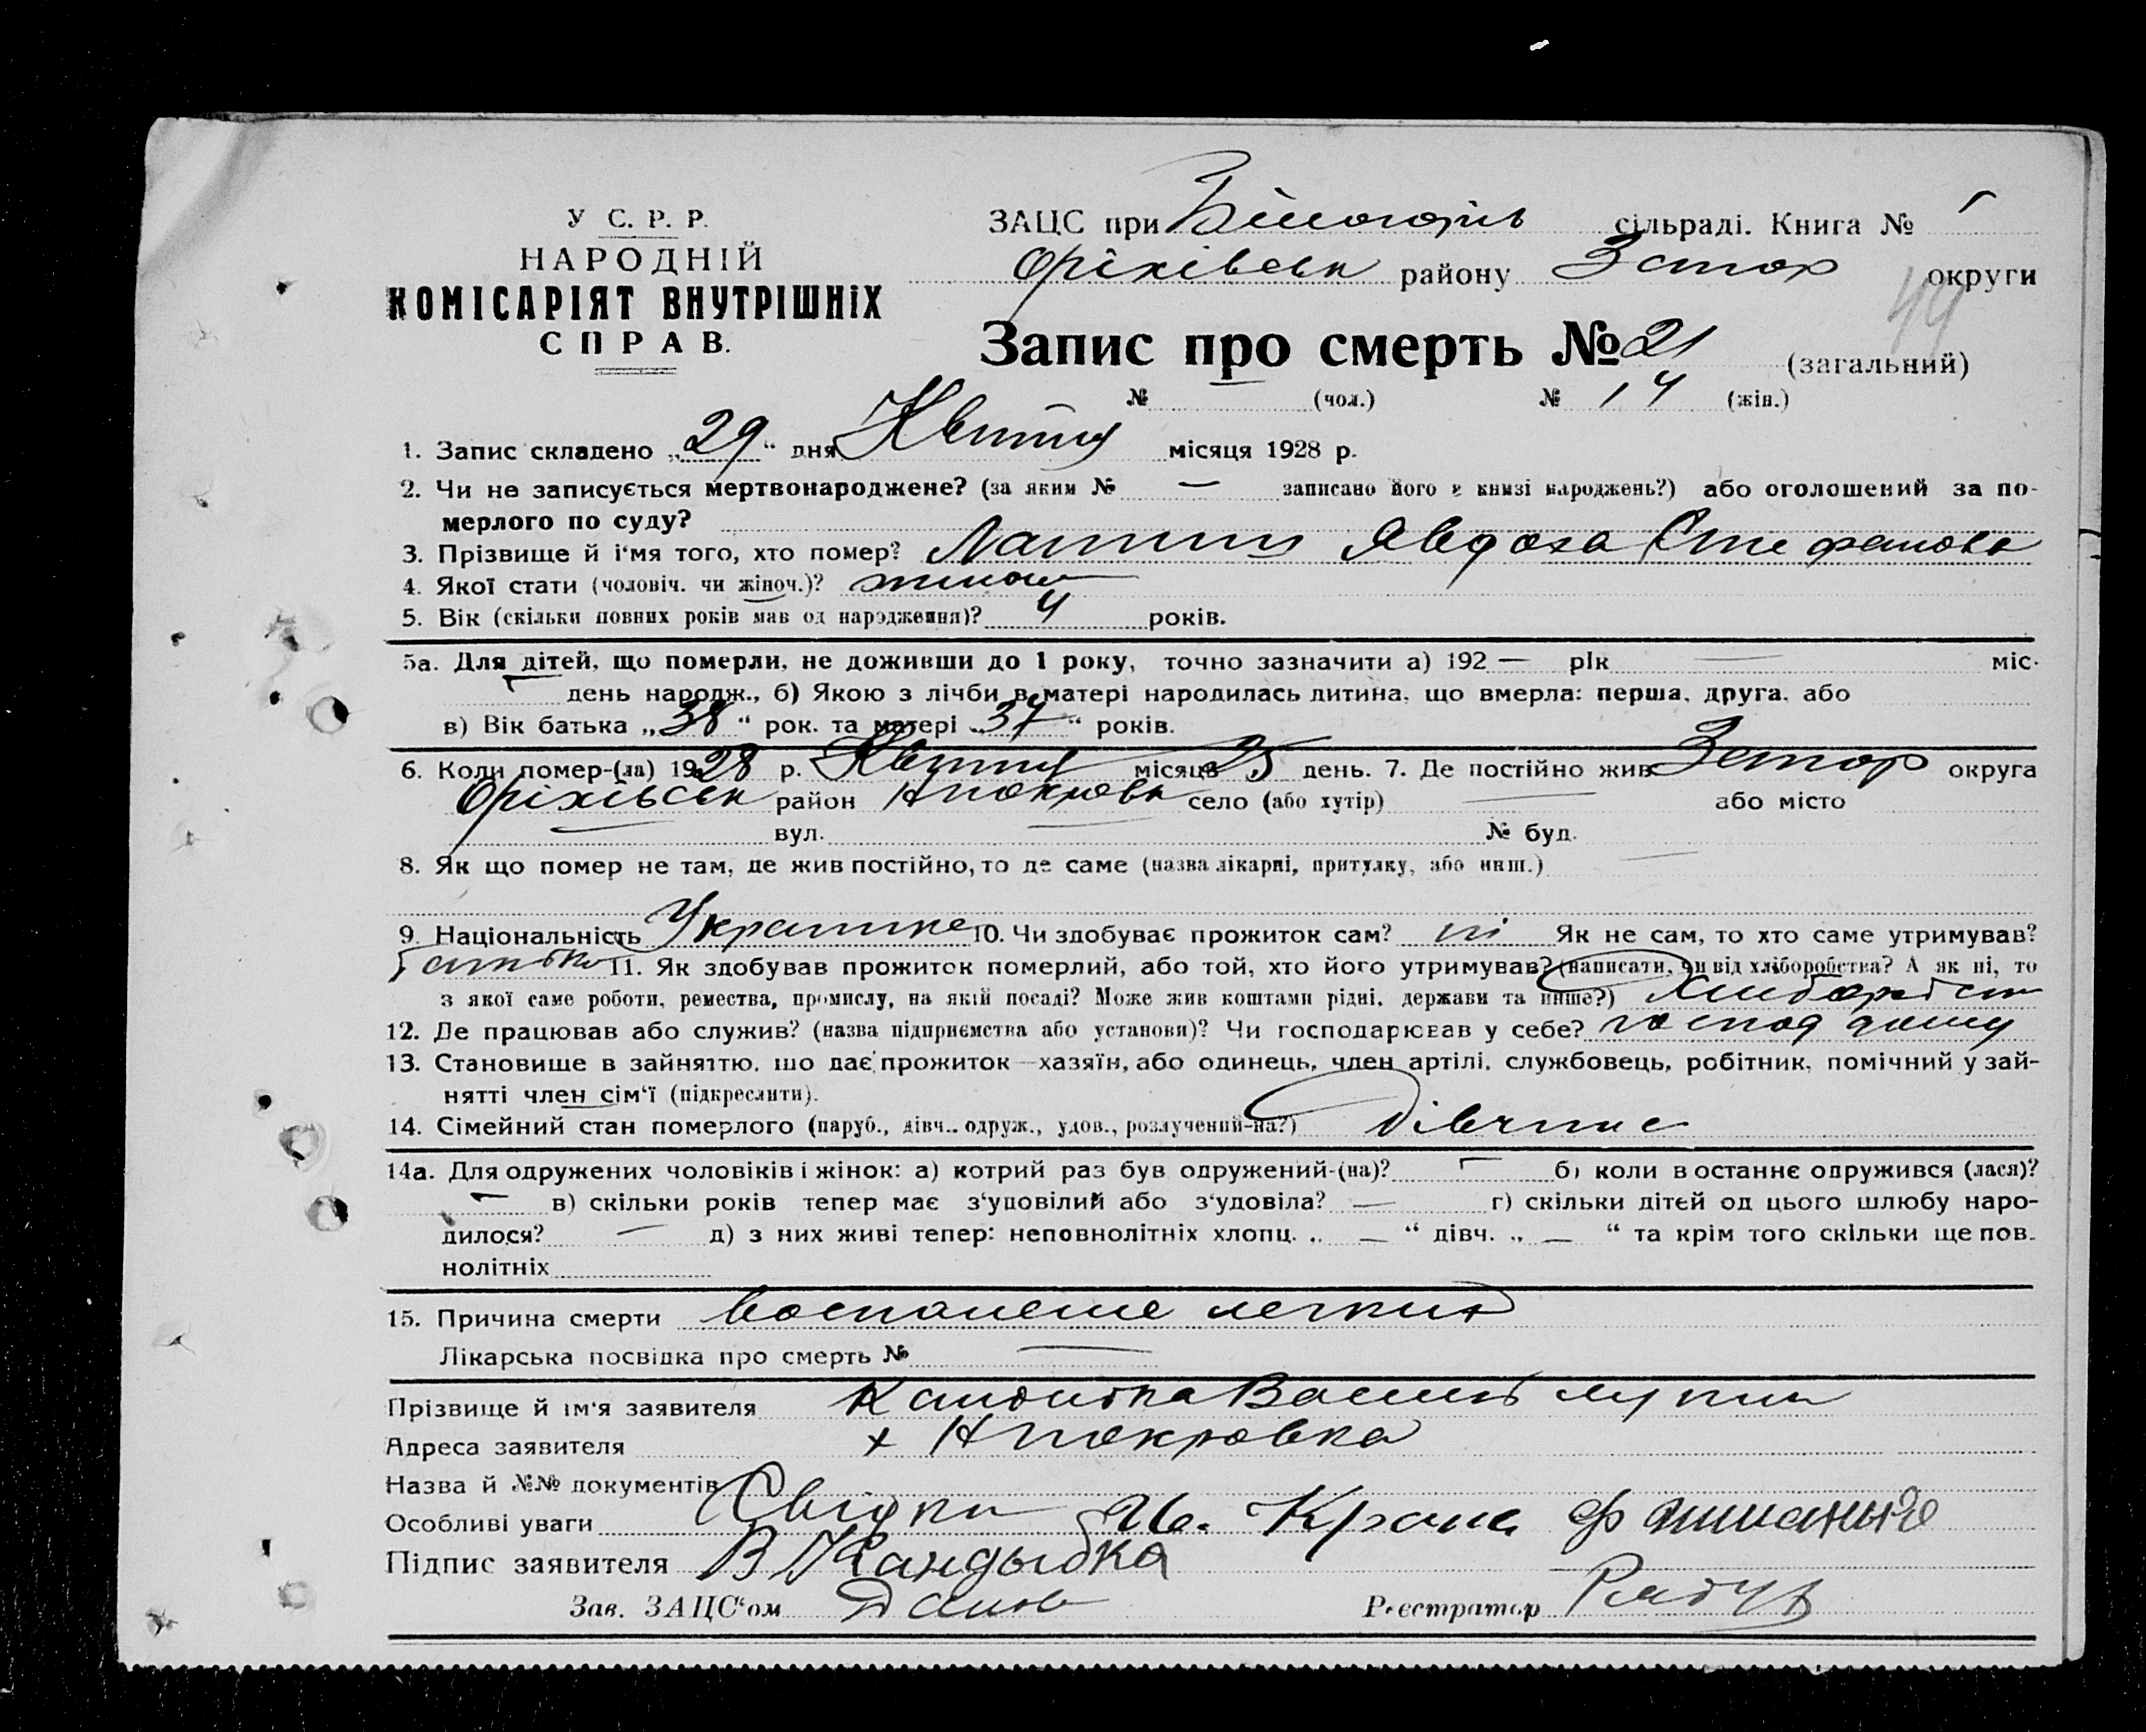 У С. Р. Р.
НАРОДНІЙ
КОМІСАРІЯТ ВНУТРІШНІХ
СПРАВ.
ЗАЦС при Білогорів сільраді. Книга № I
Оріхівськ району Запор округи
44
Запис про смерть № 21 (загальний)
№ (чол.) № 14 (жін.)
1. Запис складено „29“ дня Квітня місяця 1928 р.
2. Чи не записується мертвонароджене? (за яким № — записано його в книзі народжень?) або оголошений за по-
мерлого по суду?
3. Прізвище й і'мя того, хто помер? Явдоха Стефанова
4. Якої статі (чоловіч. чи жіноч.)? жіноч
5. Вік (скільки повних років мав од народження)? 4 років.
5а. Для дітей, що померли, не доживши до 1 року, точно зазначити а) 192 — рік — міс.
— день народж., б) Якою з лічби в матері народилась дитина, що вмерла: перша, друга, або
в) Вік батька „38“ рок. та матері „37“ років.
6. Коли помер-(ла) 1928 р. Квітня місяця 25 день. 7. Де постійно жив Запор округа
Оріхівськ район Н покровк село (або хутір) — або місто
— вул. — № буд.
8. Як що помер не там, де жив постійно, то де саме (назва лікарні, притулку, або инш.) —
9. Національність Українка 10. Чи здобуває прожиток сам? ні Як не сам, то хто саме утримував?
батько 11. Як здобував прожиток померлий, або той, хто його утримував? (написати, чи від хліборобства? А як ні, то
з якої саме роботи, ремества, промислу, на якій посаді? Може жив коштами рідні, держави та инше?) Хлиборобств
12. Де працював або служив? (назва підприємства або установи)? Чи господарював у себе? господ дому
13. Становище в зайняттю, що дає прожиток—хазяїн, або одинець, член артілі, службовець, робітник, помічний у зай-
нятті член сім'ї (підкреслити).
14. Сімейний стан померлого (паруб., дівч., одруж., удов., розлучений-на?) Дівчина
14а. Для одружених чоловіків і жінок: а) котрий раз був одружений-(на)? — б) коли в останнє одружився (лася)?
— в) скільки років тепер має з'уповілий або з'удовіла? — г) скільки дітей од цього шлюбу наро-
дилося? — д) з них живі тепер: неповнолітніх хлопц. „ — “ дівч. „ — “ та крім того скільки ще пов.
нолітніх
15. Причина смерти воспаление легких
Лікарська посвідка про смерть № —
Прізвище й ім'я заявителя Кандибка Василь
Адреса заявителя х Н покровка
Назва й №№ документів
Особливі уваги Свідки
Підпис заявителя В Кандыбка
Зав. ЗАЦС'ом Реєстратор